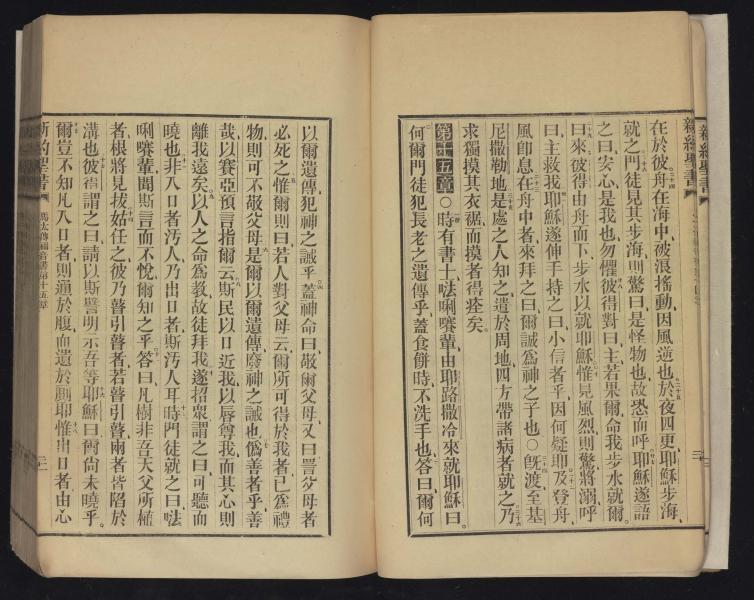 新約聖書
在於彼舟在海中被浪搖動因風逆也於夜四更耶穌步海
就之門徒見其步海則驚曰是怪物也故恐而呼耶穌遂語
之曰安心是我也勿懼彼得對曰主若果爾命我步水就爾
曰來彼得由舟而下步水以就耶穌惟見風烈則驚將溺呼
曰主救我耶穌遂伸手持之曰小信者乎因何疑耶及登舟
風卽息在舟中者來拜之曰爾誠爲神之子也〇旣渡至基
尼撒勒地是處之人知之遣於周地四方帶諸病者就之乃
求獨摸其衣裾而摸者得痊矣
第十五章〇時有書士法唎賽輩由耶路撒冷來就耶穌曰
何爾門徒犯長老之遺傳乎蓋食餅時不洗手也答曰爾何
以爾遺傳犯神之誡乎蓋神命曰敬爾父母又曰詈父母者
必死之惟爾則曰若人對父母云爾所可得於我者已爲禮
物則可不敬父母是爾以爾遺傳廢神之誡也僞善者乎善
哉以賽亞預言指爾云斯民以口近我以唇尊我而其心則
離我遠矣以人之命爲教故徒拜我遂招衆謂之曰可聽而
曉也非入口者汚人乃出口者斯汚人耳時門徒就之曰法
唎賽輩聞斯言而不悅爾知之乎答曰凡樹非吾天父所植
者根將見拔姑任之彼乃瞽引瞽者若瞽引瞽兩者皆陷於
溝也彼得謂之曰請以斯譬明示吾等耶穌曰爾尙未曉乎
爾豈不知凡入口者則運於腹而遺於廁耶惟出口者由心
新約聖書
馬太傳福音書第十五章